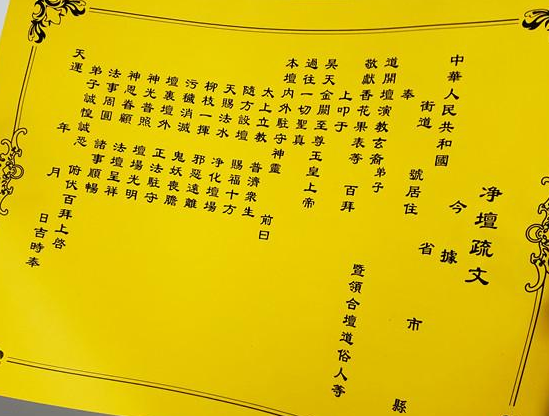 净壇疏文
今據
中華人民共和國 省 市 縣
街道 號居住
奉
道開壇演教玄裔弟子 暨領合壇道俗人等
敬獻香花果表等 百拜
上叩于
昊天金闕至尊玉皇上帝
過往一切聖真
本壇内外駐守神靈 前曰
太上立教 普濟衆生
隨方設壇 賜福十方
天賜法水 净化壇場
柳枝一揮 邪惡遠離
污穢消滅 鬼妖喪膽
壇裏壇外 正法駐守
神光普照 壇場光明
神恩眷顧 法壇呈祥
法事周圓 諸事順暢
弟子誠惶誠恐 俯伏百拜上啓
天運 年 月 日吉時奉